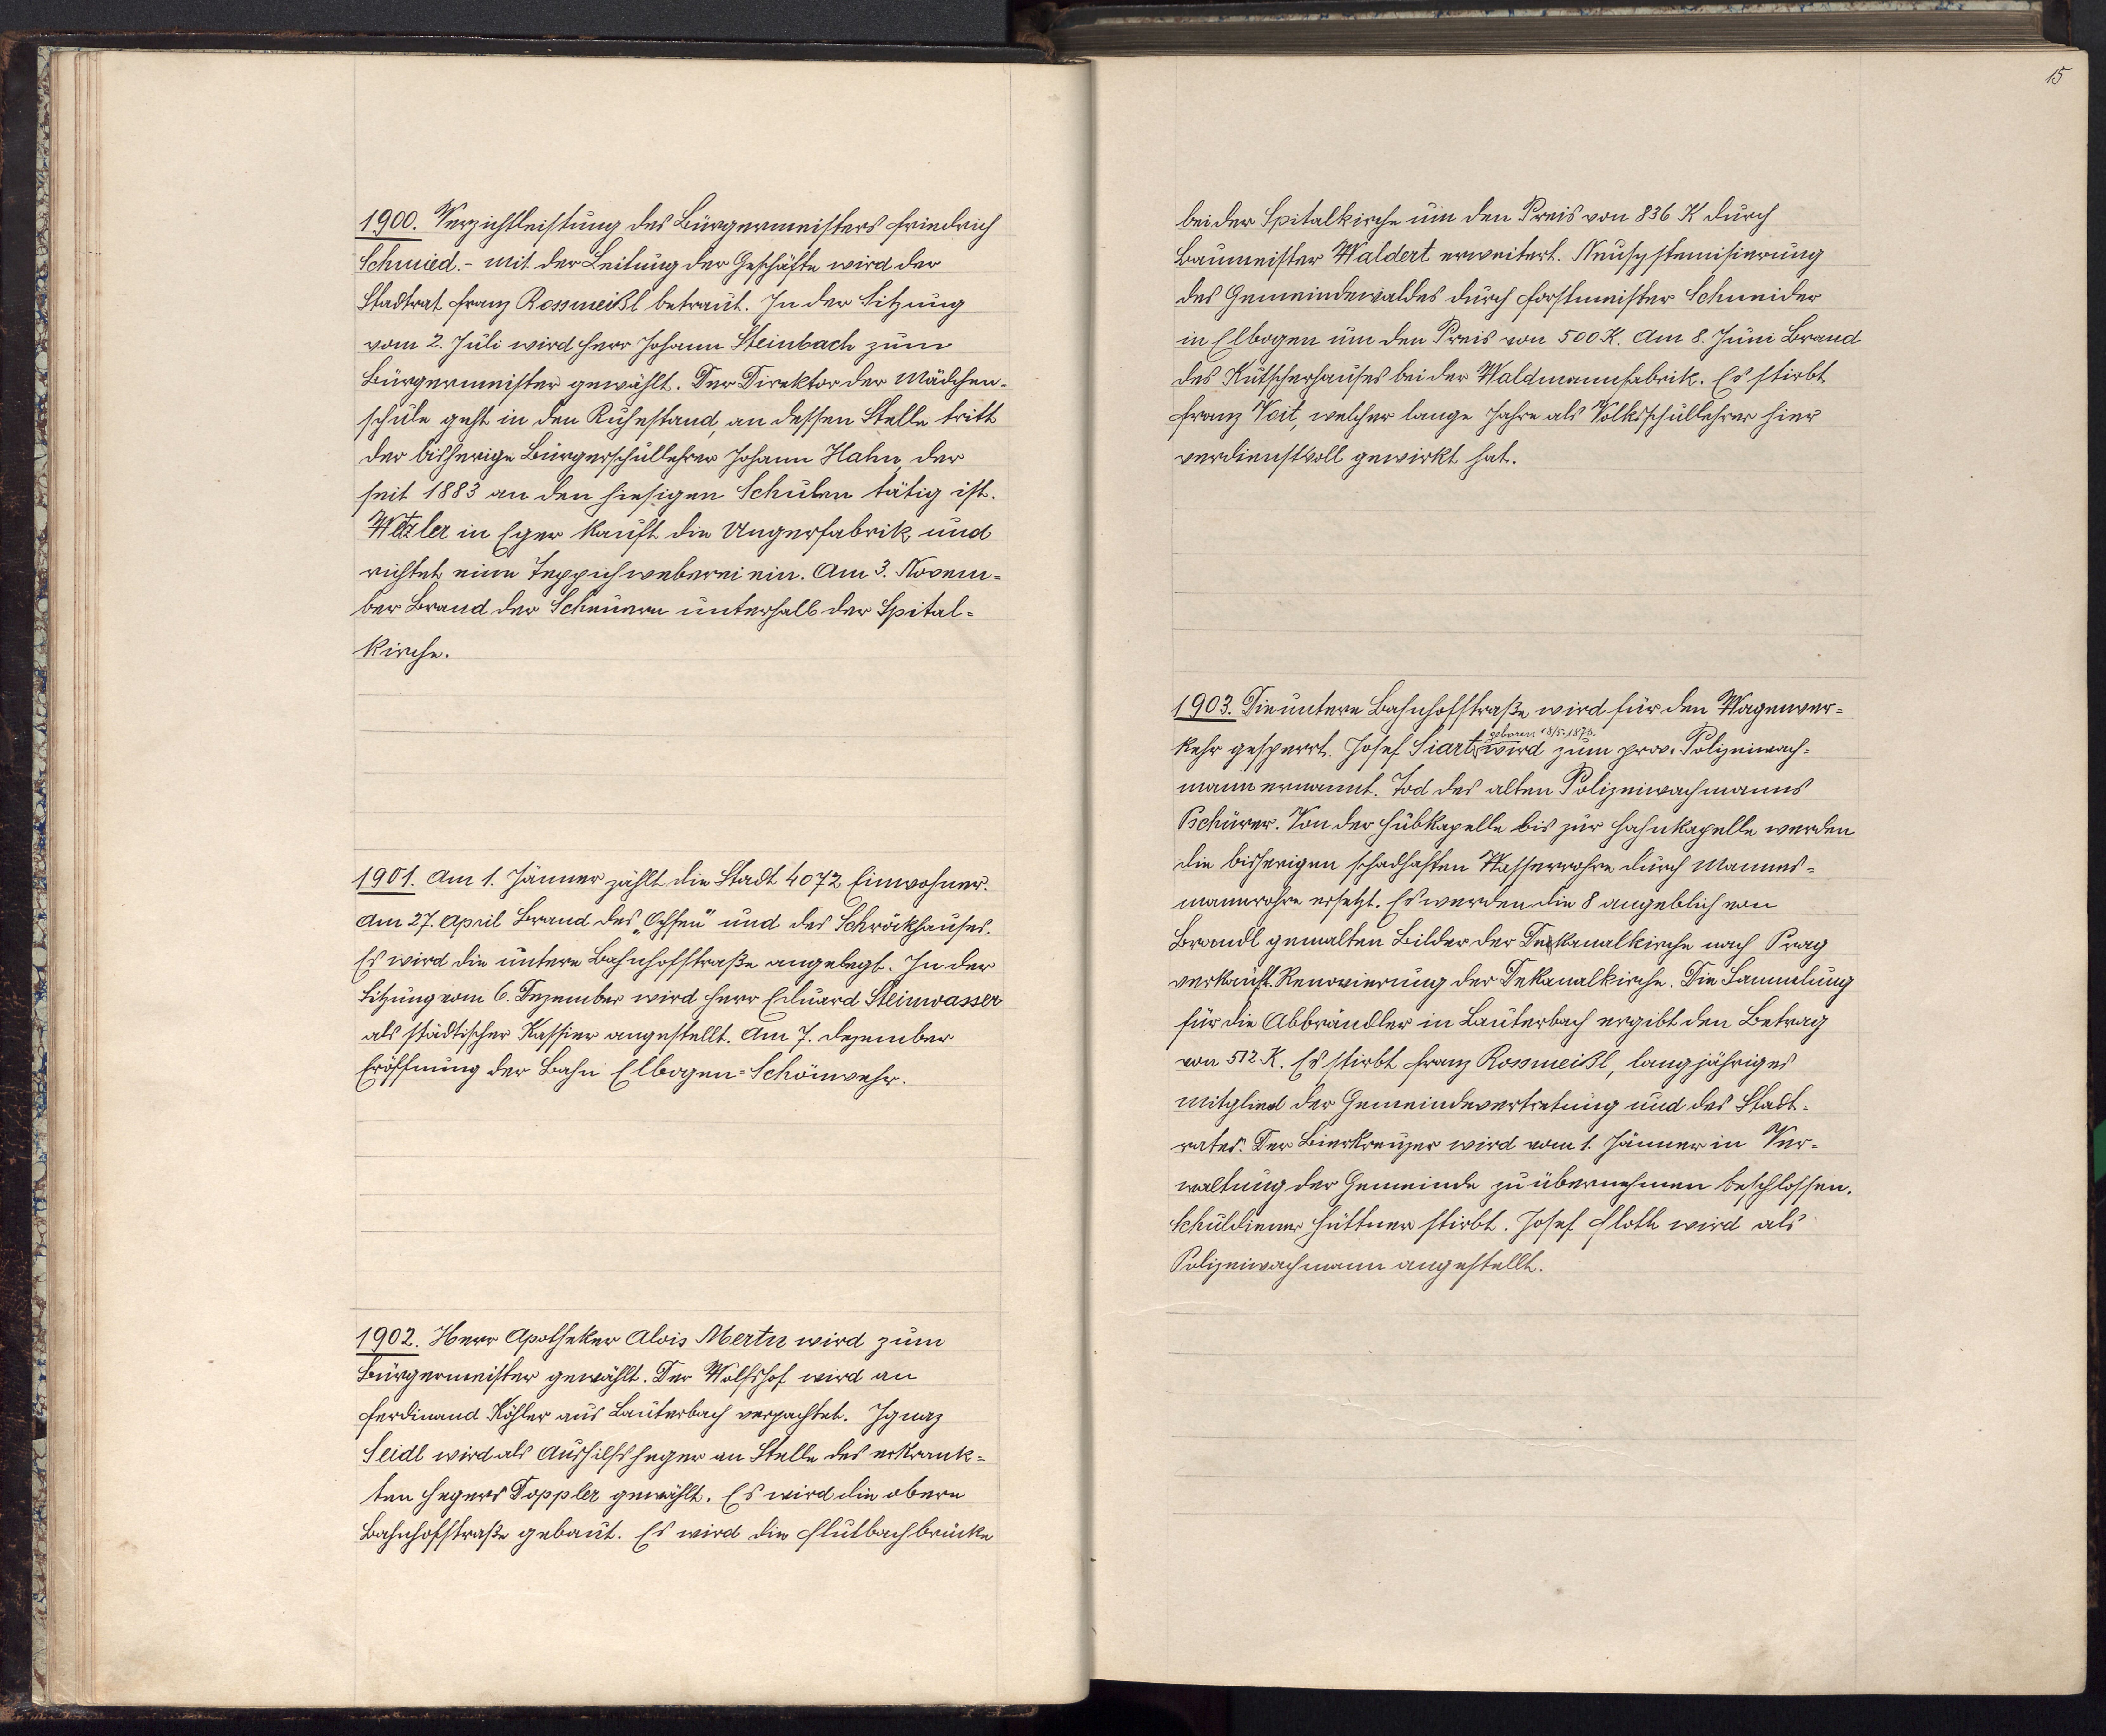 1900. Verzichtleistung des Bürgermeisters Friedrich
Schmied. - Mit der Leitung der Geschäfte wird der
Stadtrat Franz Rossmeißl betraut. In der Sitzung
vom 2. Juli wird Herr Johann Steinbach zum
Bürgermeister gewählt. Der Direktor der Mädchen-
schule geht in den Ruhestand, an dessen Stelle tritt
der bisherige Bürgerschullehrer Johann Hahn, der
seit 1883 an den hiesigen Schulen tätig ist.
Wetzler in Eger kauft die Ungerfabrik und
richtet eine Teppichweberei ein. Am 3. Novem=
ber Brand der Scheuern unterhalb der Spital=
kirche.
1901. Am 1. Jänner zählt die Stadt 4072 Einwohner.
Am 27. April Brand des „Ochsen" und des Schröckhauses.
Es wird die untere Bahnhofstraße angelegt. In der
Sitzung vom 6. Dezember wird Herr Eduard Steinwasser
als städtischer Kassier angestellt. Am 7. Dezember
Eröffnung der Bahn Elbogen=Schönwehr.
1902. Herr Apotheker Alois Mertn wird zum
Bürgermeister gewählt. Der Wolfshof wird an
Ferdinand Köhler aus Lauterbach verpachtet. Ignaz
Seidl wird als Aushilfsheger an Stelle des erkrank=
ten Hegers Doppler gewählt. Es wird die obere
Bahnhofstraße gebaut. Es wird die Flutbachbrücke
15
bei der Spitalkirche um den Preis von 836 K durch
Baumeister Waldert erweitert. Neusystemisierung
des Gemeindewaldes durch Forstmeister Schneider
in Elbogen um den Preis von 500 K. Am 8. Juni Brand
des Kutscherhauses bei der Waldmannfabrik. Es stirbt
Franz Veit, welcher lange Jahre als Volksschullehrer hier
verdienstvoll gewirkt hat.
1903. Die untere Bahnhofstraße wird für den Wagenver=
geboren 18/5. 1873.
kehr gesperrt. Josef Siart wird zum prov. Polizeiwach=
mann ernannt. Tod des alten Polizeiwachmanns
Pschürer. Von der Hubkapelle bis zur Hahnkapelle werden
die bisherigen schadhaften Wasserrohre durch Mannes=
mannrohre ersetzt. Es werden die 8 angeblich von
Brandl gemalten Bilder der Dekanalkirche nach Prag
verkauft. Renovierung der Dekanalkirche. Die Sammlung
für die Abbrändler in Lauterbach ergibt den Betrag
von 512 K. Es stirbt Franz Rossmeißl, langjähriges
Mitglied der Gemeindevertretung und des Stadt=
rates. Der Bierkreuzer wird vom 1. Jänner in Ver=
waltung der Gemeinde zu übernehmen beschlossen.
Schuldiener Hüttner stirbt. Josef Floth wird als
Polizeiwachmann angestellt.